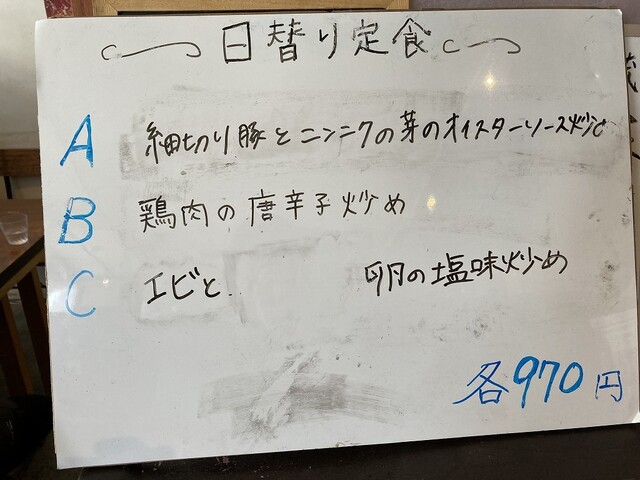 日替り定食
A 細切り豚とニンニクの芽のオイスターソース炒め
B 鶏肉の唐辛子炒め
C エビと 卵の塩味炒め
各970円